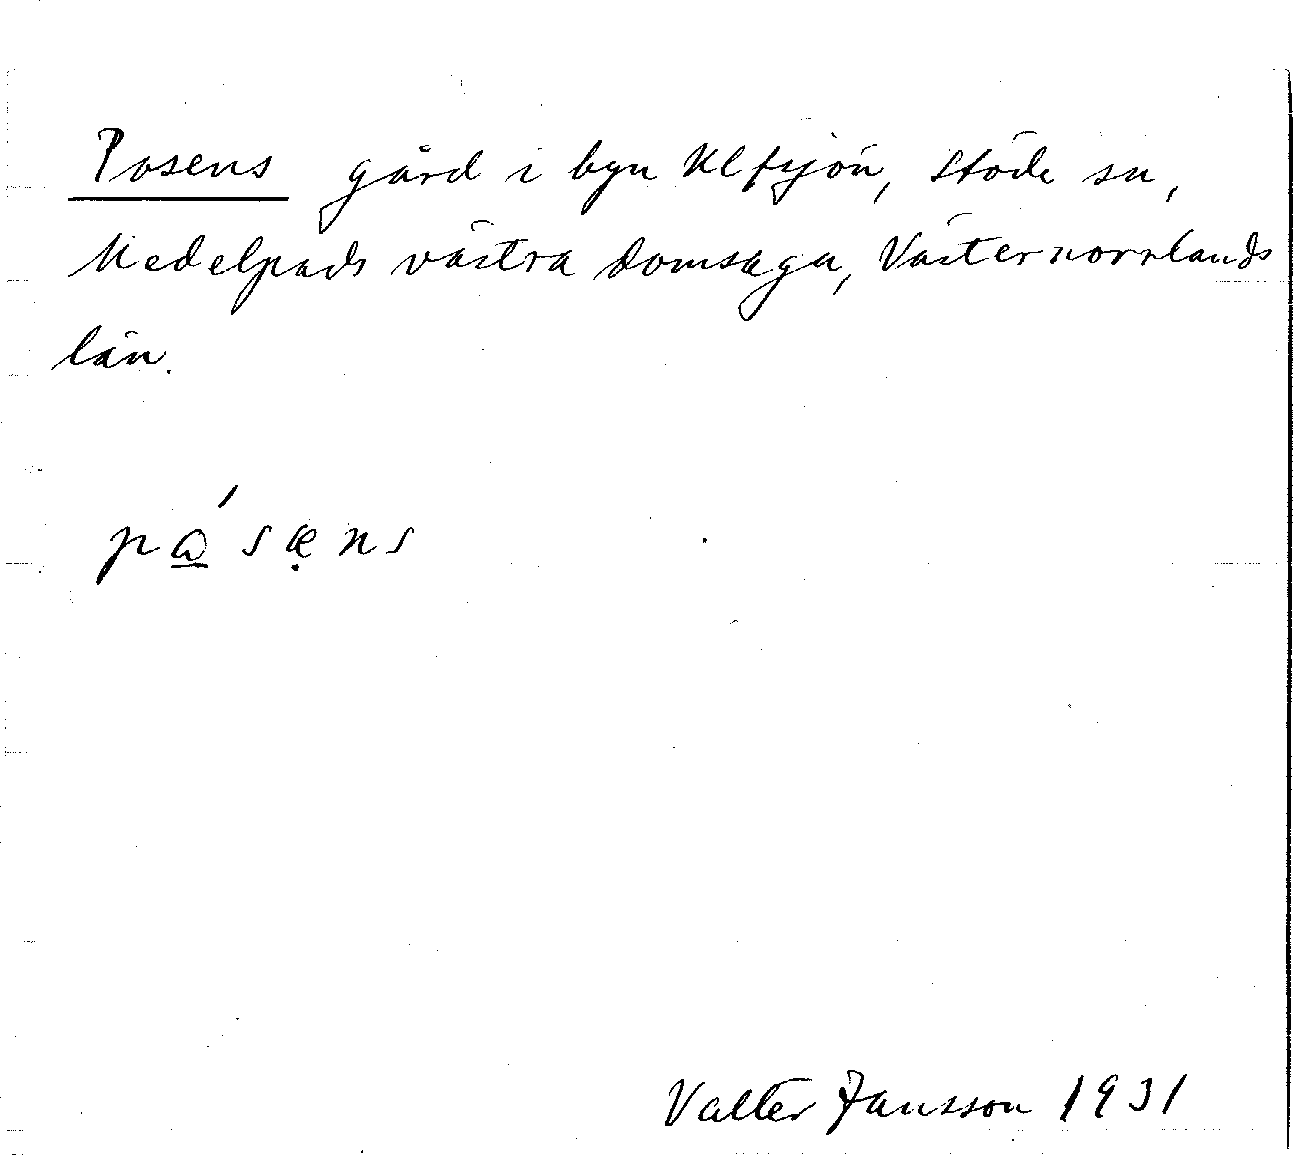 Posens gård i byn Ulfsjön, Stöde sn,
Medelpads västra domsaga, Västernorrlands
län.
pǻsęns
Valter Jansson 1931